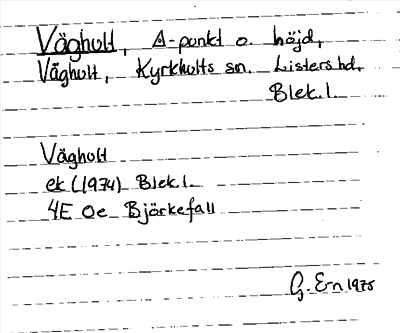 Våghult, Δ-punkt o. höjd,
Våghult, Kyrkhults sn. Listers hd.
Blek. l.
Våghult
ek (1974) Blek. l.
4E 0e Björkefall
G. Ern 1975